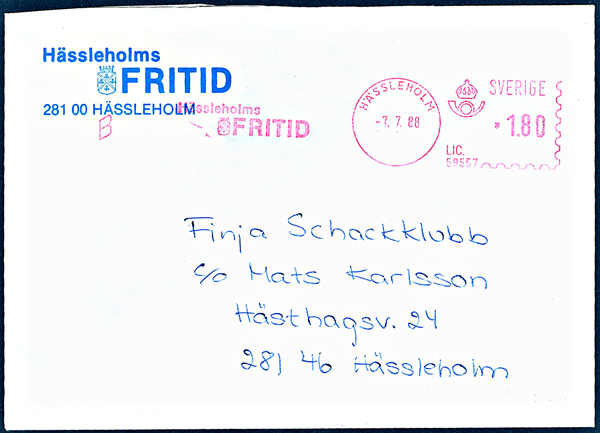 Hässleholms
FRITID
281 00 HÄSSLEHOLM
Hässleholms
FRITID
B
HÄSSLEHOLM
-7. 7. 88
SVERIGE
*1.80
LIC.
59557
Finja Schackklubb
c/o Mats Karlsson
Hästhagsv. 24
281 46 Hässleholm